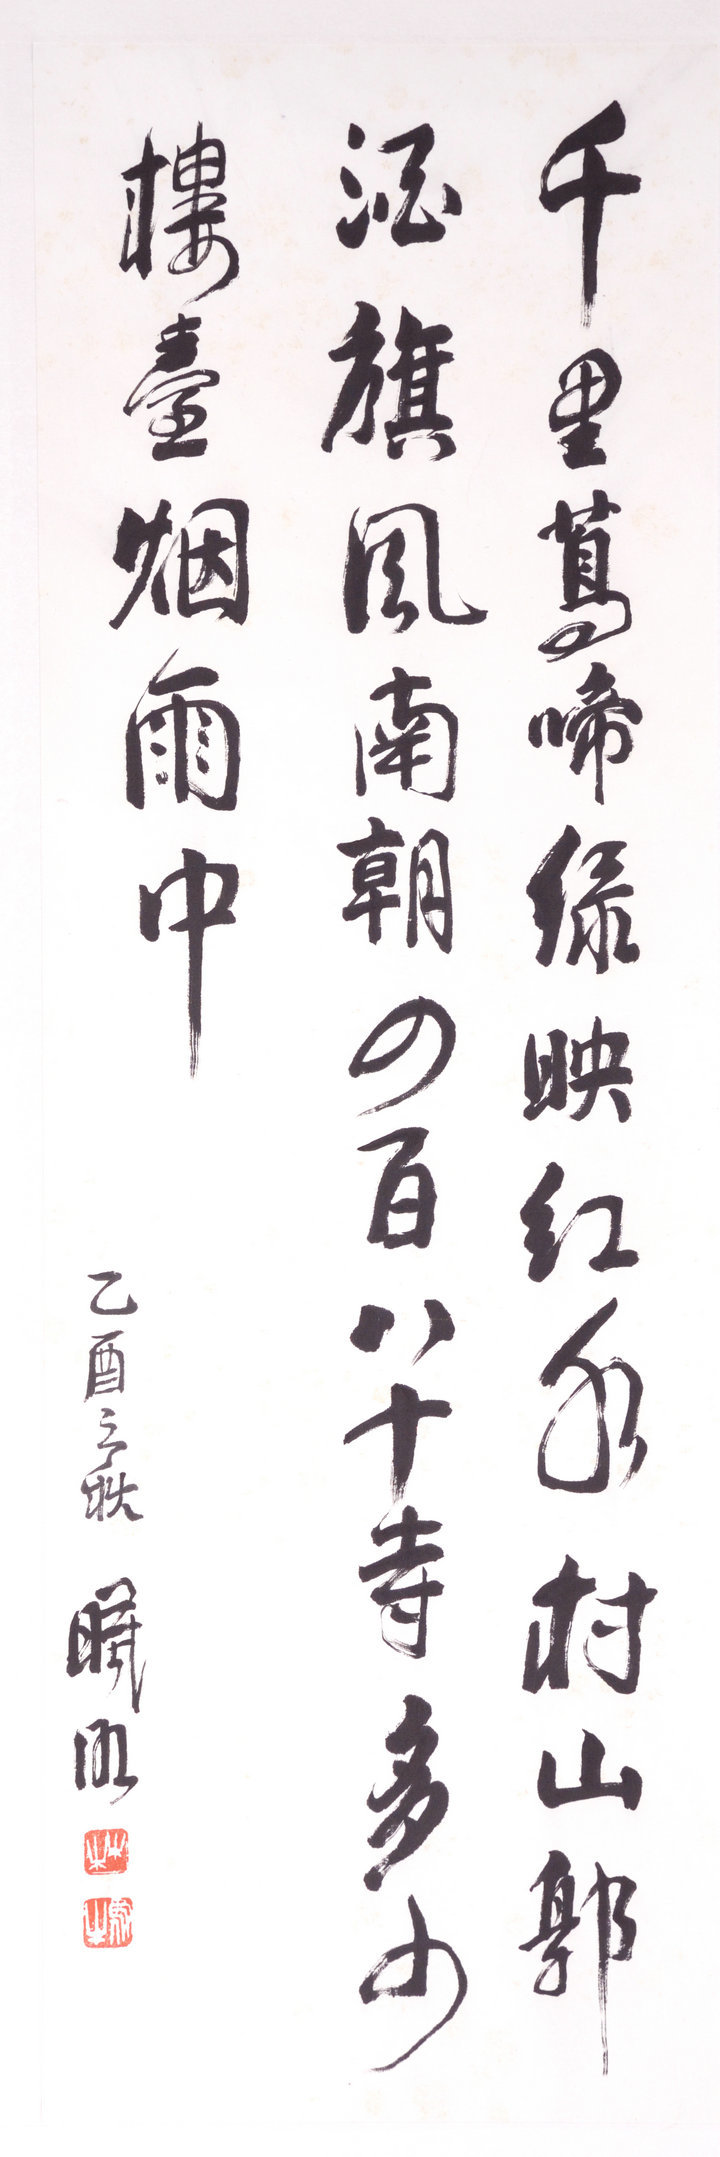 千里莺啼绿映红水村山郭
酒旗风南朝四百八十寺多少
樓臺烟雨中
乙酉之秋